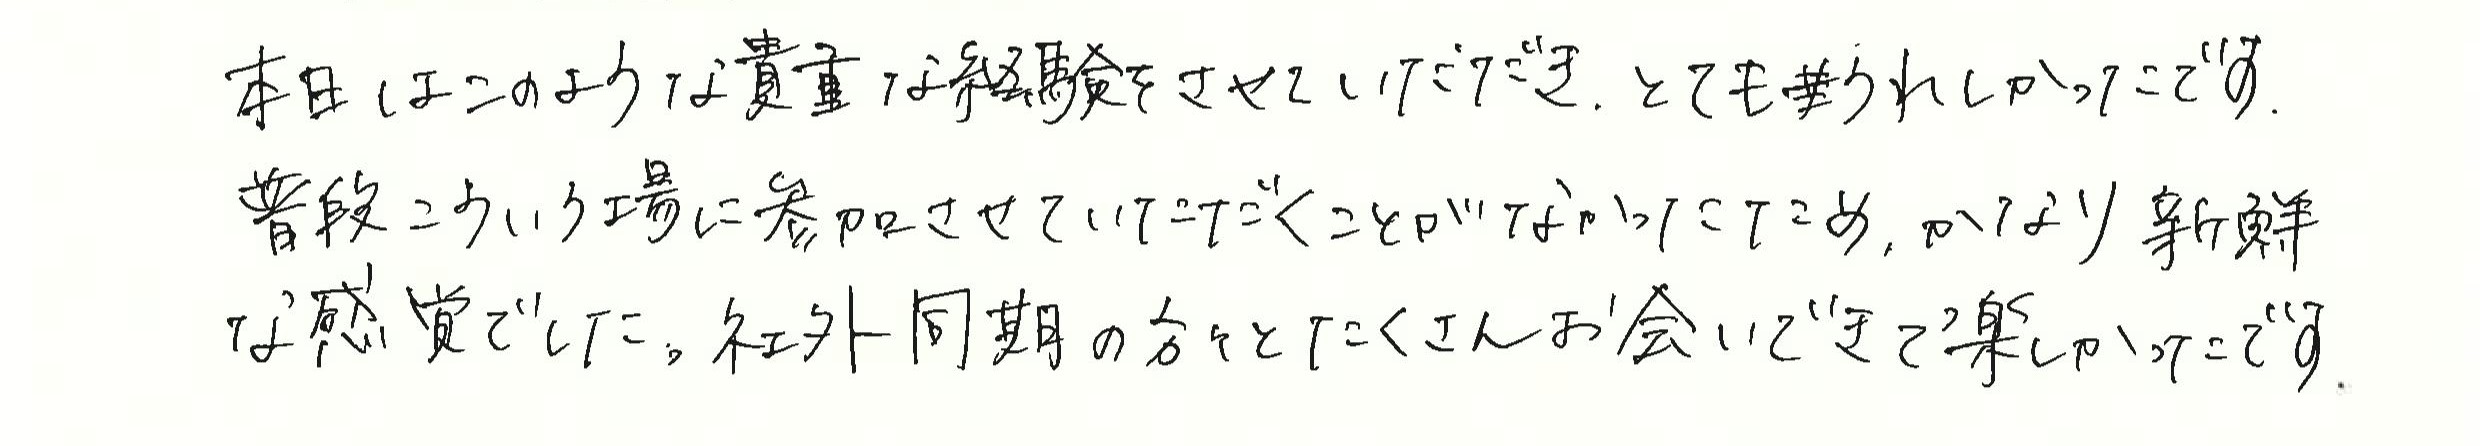 本日はこのような貴重な経験をさせていただき、とてもうれしかったです。
普段こういう場に参加させていただくことがなかったため、かなり新鮮
な感覚でした。社外同期の方々とたくさんお会いできて楽しかったです。